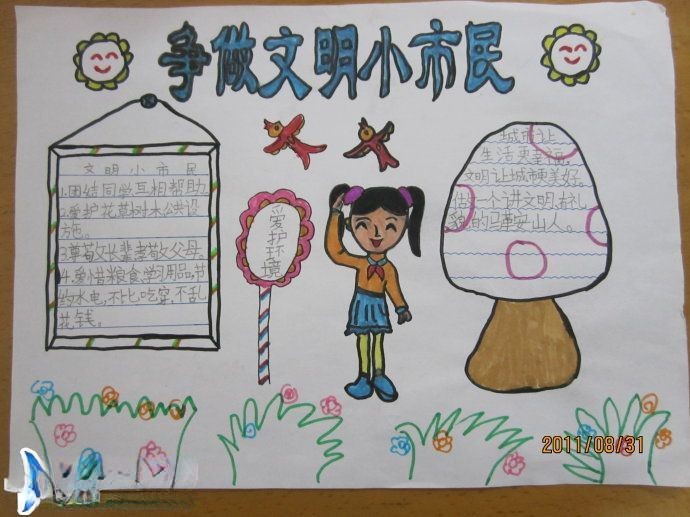 争做文明小市民
文明小市民
1.团结同学互相帮助
2.爱护花草树木公共设
施。
3.尊敬长辈孝敬父母。
4.爱惜粮食学习用品,节
约水电,不比吃穿,不乱
花钱。
爱护环境
城市让
生活更幸福,
文明让城市更美好。
做一个讲文明,有礼
貌的马鞍山人。
2011/08/31